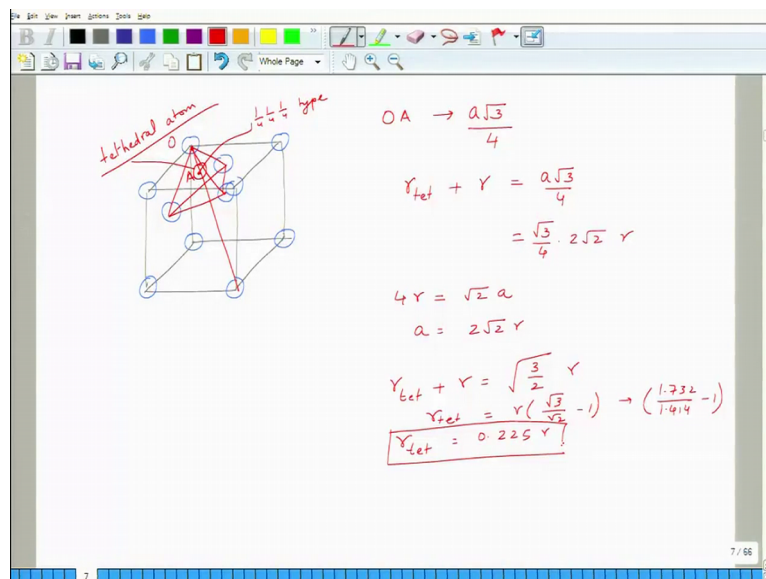 File Edit View Insert Actions Tools Help
B I
Whole Page
tethedral atom
1/4 1/4 1/4 type
O
A
OA → a√3/4
r_tet + r = a√3/4
= √3/4 . 2√2 r
4r = √2 a
a = 2√2 r
r_tet + r = √(3/2) r
r_tet = r(√3/√2 - 1) → (1.732/1.414 - 1)
r_tet = 0.225 r
7 / 66
7